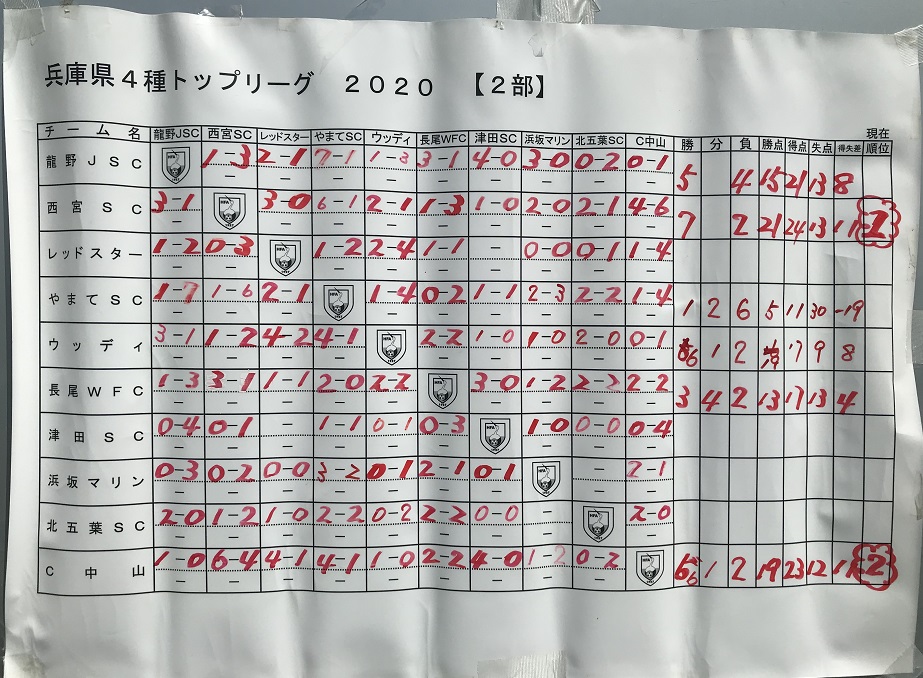 兵庫県4種トップリーグ 2020 【2部】
現在
チーム名 龍野JSC 西宮SC レッドスター やまてSC ウッディ 長尾WFC 津田SC 浜坂マリン 北五葉SC C中山 勝 分 負 勝点 得点 失点 得失差 順位
龍野JSC 1-3 2-1 7-1 1-3 3-1 4-0 3-0 0-2 0-1 5 4 15 21 13 8
- - - - - - - - -
西宮SC 3-1 3-0 6-1 2-1 1-3 1-0 2-0 2-1 4-6 7 2 21 24 13 11 1
- - - - - - - - -
レッドスター 1-2 0-3 1-2 2-4 1-1 - 0-0 0-1 1-4
- - - - - - - - -
やまてSC 1-7 1-6 2-1 1-4 0-2 1-1 2-3 2-2 1-4 1 2 6 5 11 30 -19
- - - - - - - - -
ウッディ 3-1 1-2 4-2 4-1 2-2 1-0 1-0 2-0 0-1 6 1 2 17 9 8
- - - - - - - - -
長尾WFC 1-3 3-1 1-1 2-0 2-2 3-0 1-2 2-2 2-2 3 4 2 13 17 13 4
- - - - - - - - -
津田SC 0-4 0-1 - 1-1 0-1 0-3 1-0 0-0 0-4
- - - - - - - - -
浜坂マリン 0-3 0-2 0-0 3-2 0-1 2-1 0-1 - 2-1
- - - - - - - - -
北五葉SC 2-0 1-2 1-0 2-2 0-2 2-2 0-0 - 2-0
- - - - - - - - -
C中山 1-0 6-4 4-1 4-1 1-0 2-2 4-0 1-2 0-2 6 1 2 19 23 12 11 2
- - - - - - - - -